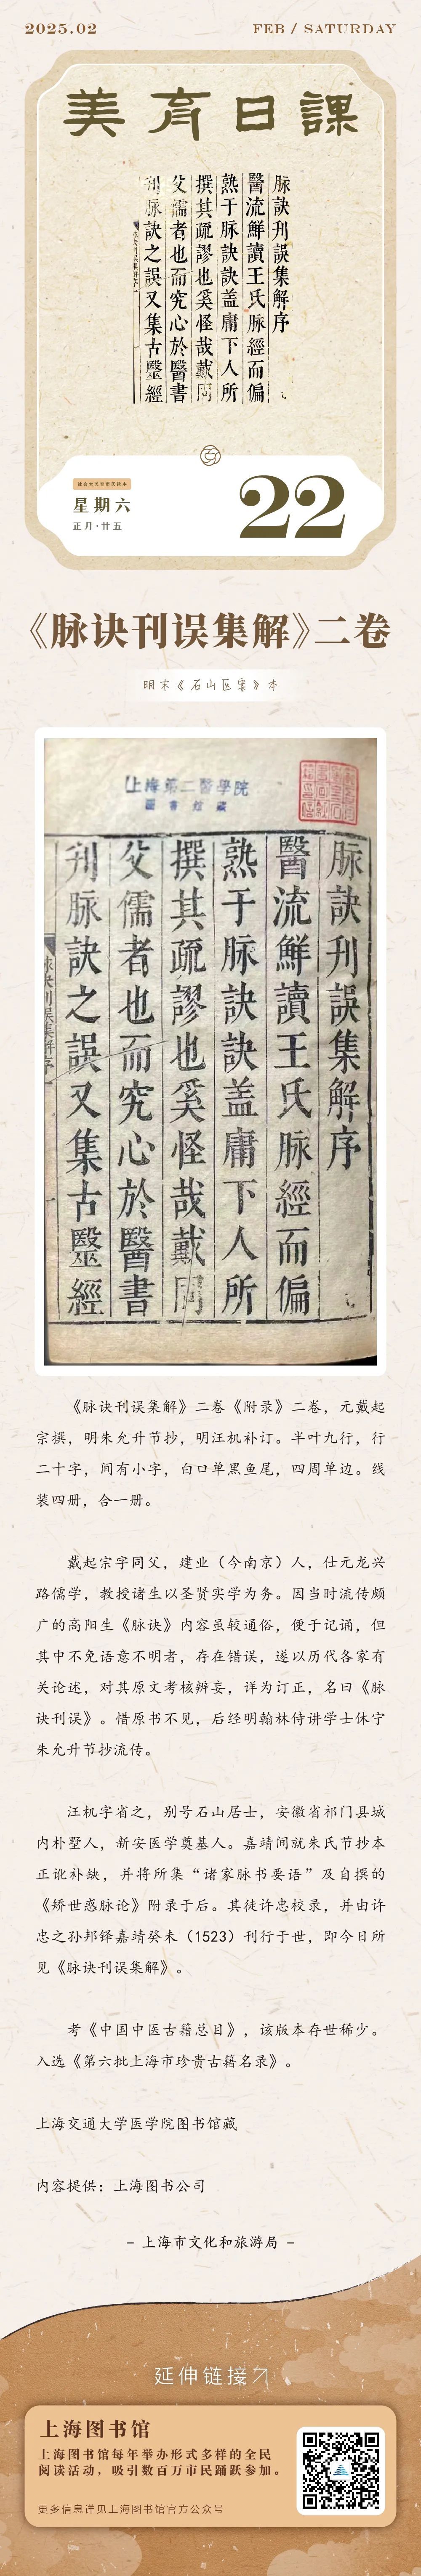 2025.02
FEB / SATURDAY
美育日課
脉訣刊誤集解序
醫流鮮讀王氏脉經而偏
熟于脉訣訣盖庸下人所
撰其疏謬也奚怪哉戴同
父儒者也而究心於醫書
刋脉訣之誤又集古毉經
星期六
正月·廿五
22
《脉诀刊误集解》二卷
明末《石山医案》本
上海第二醫學院
圖書館藏
脉訣刊誤集解序
醫流鮮讀王氏脉經而偏
熟于脉訣訣盖庸下人所
撰其疏謬也奚怪哉戴同
父儒者也而究心於醫書
刋脉訣之誤又集古毉經
《脉诀刊误集解》二卷《附录》二卷，元戴起
宗撰，明朱允升节抄，明汪机补订。半叶九行，行
二十字，间有小字，白口单黑鱼尾，四周单边。线
装四册，合一册。
戴起宗字同父，建业（今南京）人，仕元龙兴
路儒学，教授诸生以圣贤实学为务。因当时流传颇
广的高阳生《脉诀》内容虽较通俗，便于记诵，但
其中不免语意不明者，存在错误，遂以历代各家有
关论述，对其原文考核辨妄，详为订正，名曰《脉
诀刊误》。惜原书不见，后经明翰林侍讲学士休宁
朱允升节抄流传。
汪机字省之，别号石山居士，安徽省祁门县城
内朴墅人，新安医学奠基人。嘉靖间就朱氏节抄本
正讹补缺，并将所集“诸家脉书要语”及自撰的
《矫世惑脉论》附录于后。其徒许忠校录，并由许
忠之孙邦铎嘉靖癸未（1523）刊行于世，即今日所
见《脉诀刊误集解》。
考《中国中医古籍总目》，该版本存世稀少。
入选《第六批上海市珍贵古籍名录》。
上海交通大学医学院图书馆藏
内容提供：上海图书公司
– 上海市文化和旅游局 –
延伸链接
上海图书馆
上海图书馆每年举办形式多样的全民
阅读活动，吸引数百万市民踊跃参加。
更多信息详见上海图书馆官方公众号